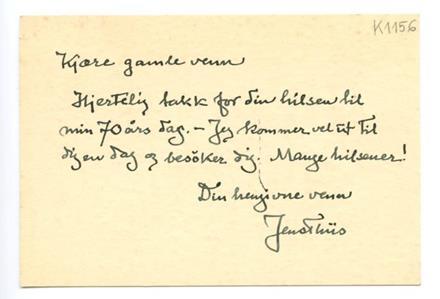 K1156
Kjære gamle venn
Hjertelig takk for din hilsen til
min 70 års dag. – Jeg kommer vel ut til
dig en dag og besöker dig. Mange hilsener!
Din hengivne venn
Jens Thiis